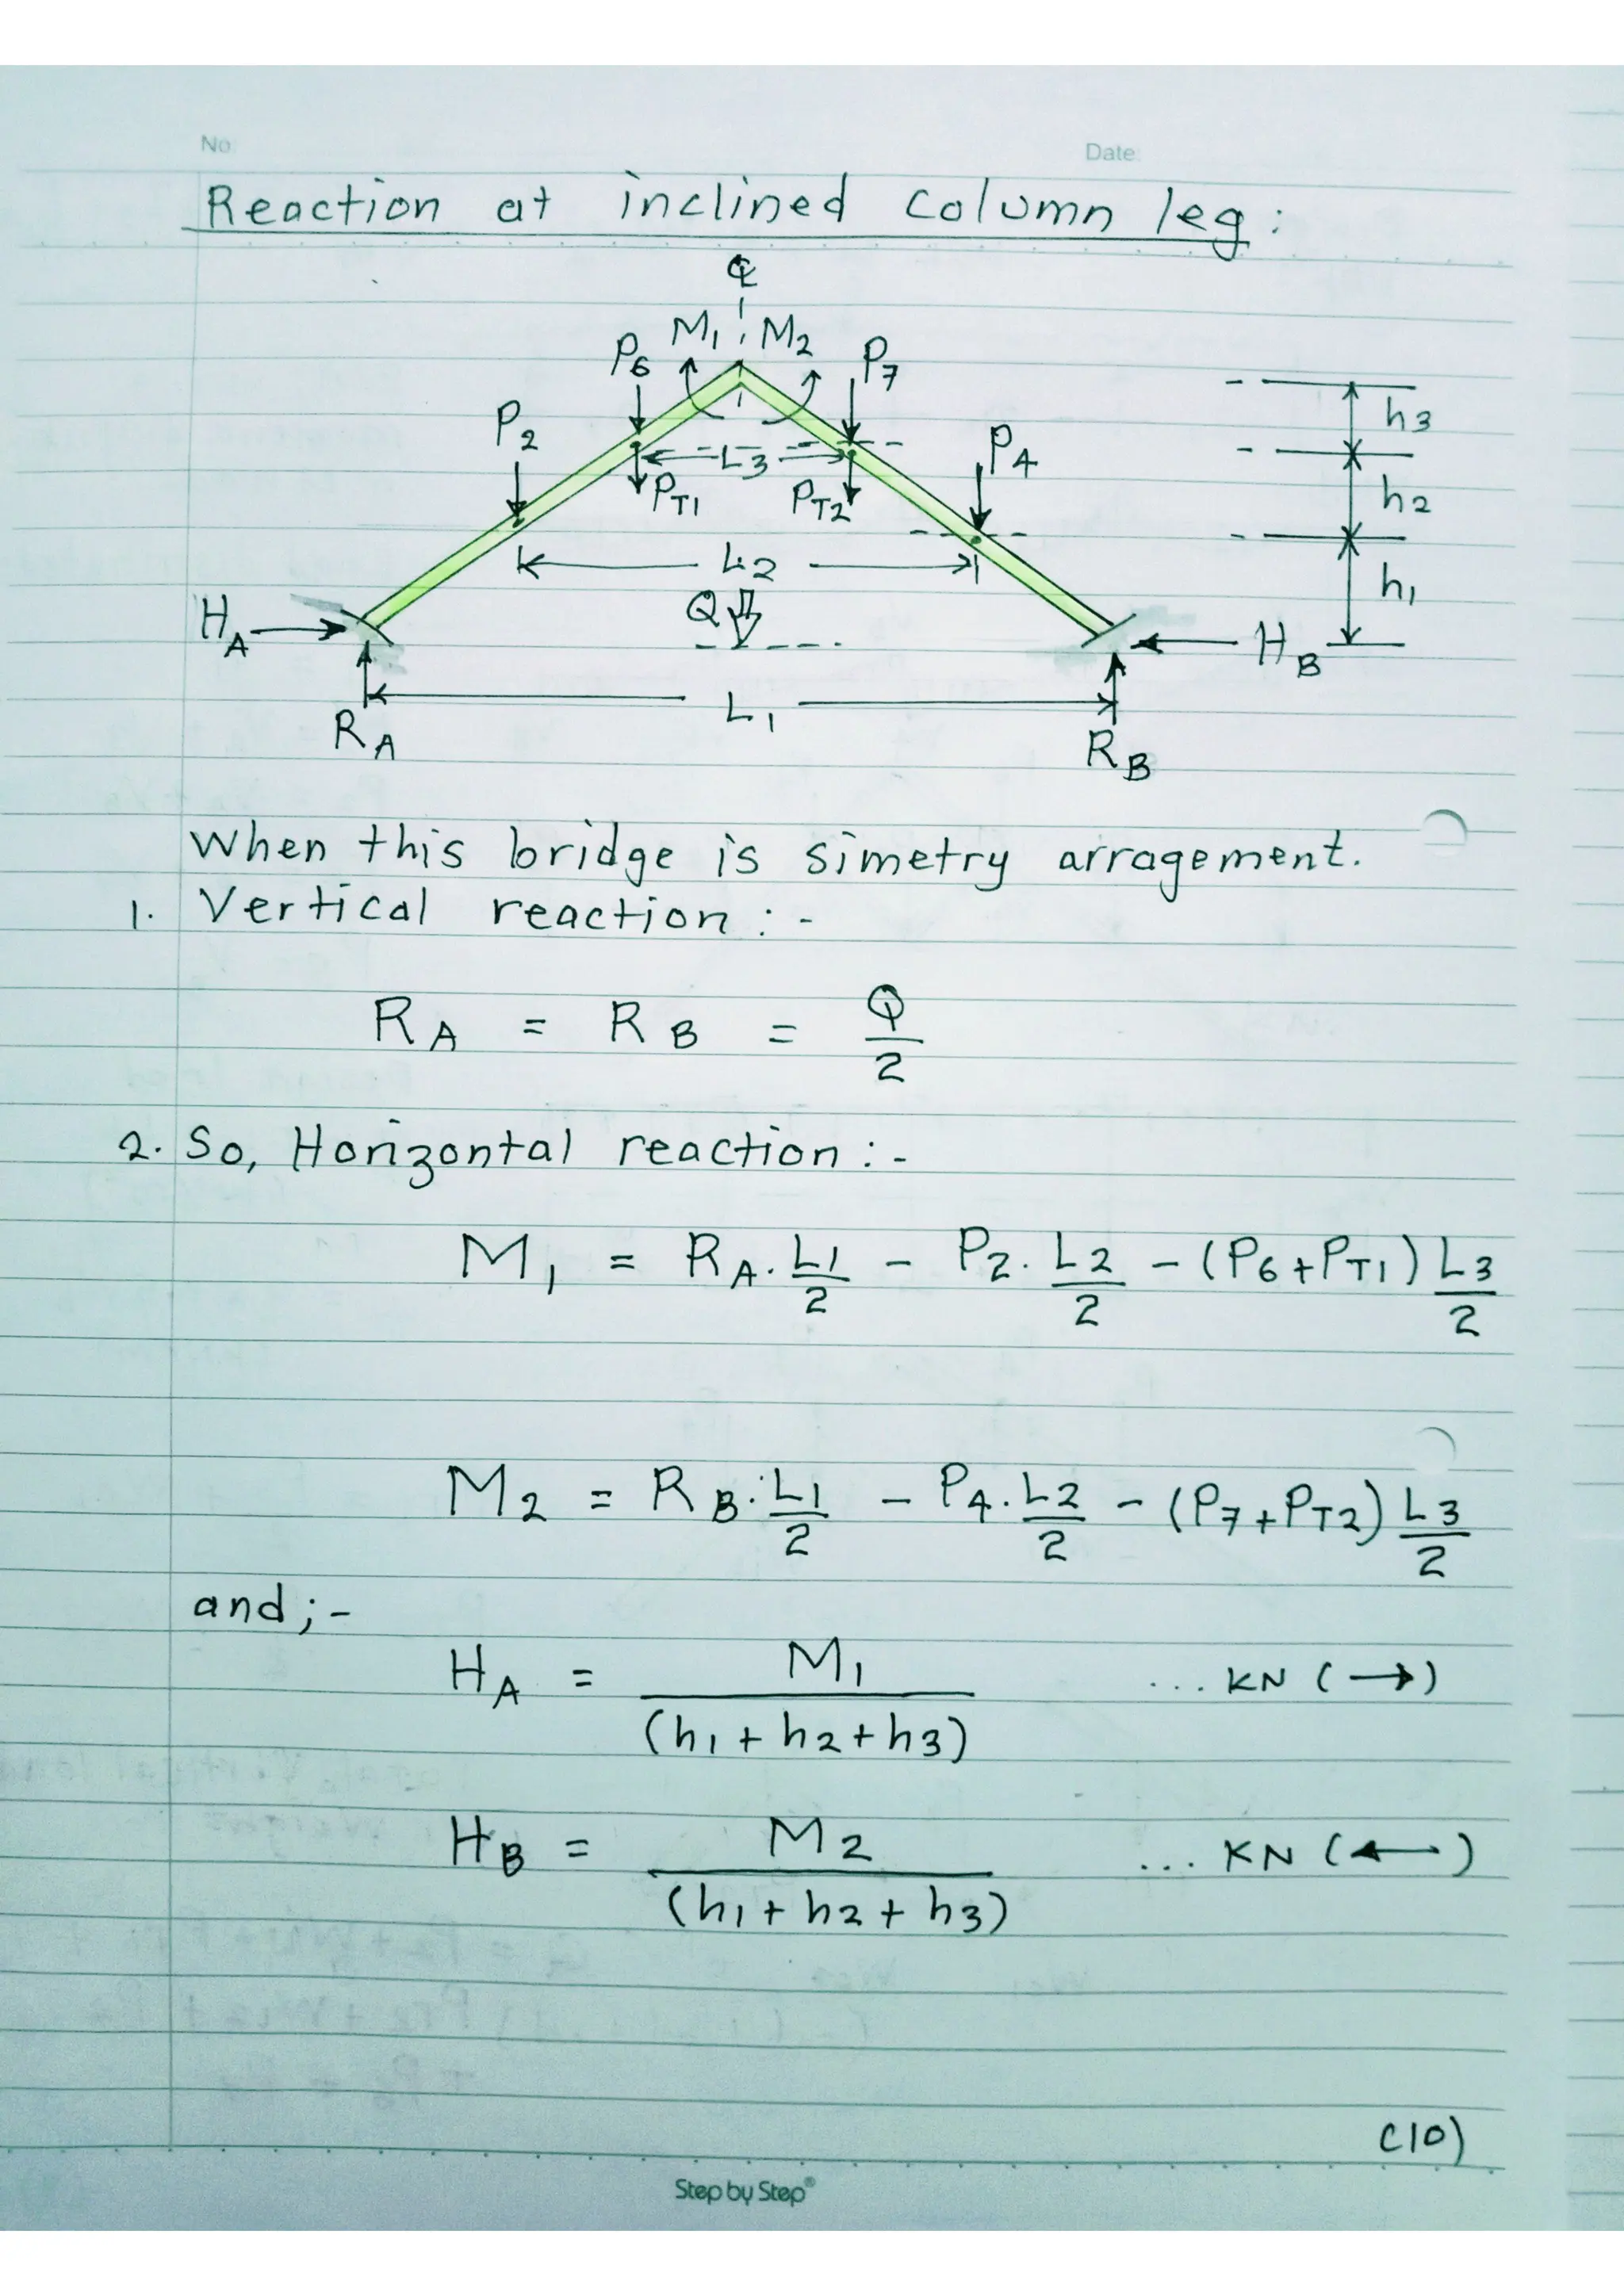 No
Date:
Reaction at inclined column leg:
℄
M1 M2
P6
P7
P2
P4
L3
PT1
PT2
h3
h2
h1
L2
Q
HA
HB
L1
RA
RB
When this bridge is simetry arragement.
1. Vertical reaction : -
RA = RB = Q/2
2. So, Horizontal reaction : -
M1 = RA. L1/2 - P2. L2/2 - (P6+PT1) L3/2
M2 = RB. L1/2 - P4. L2/2 - (P7+PT2) L3/2
and ; -
HA = M1/(h1+h2+h3) ... KN (→)
HB = M2/(h1+h2+h3) ... KN (←)
(10)
Step by Step®